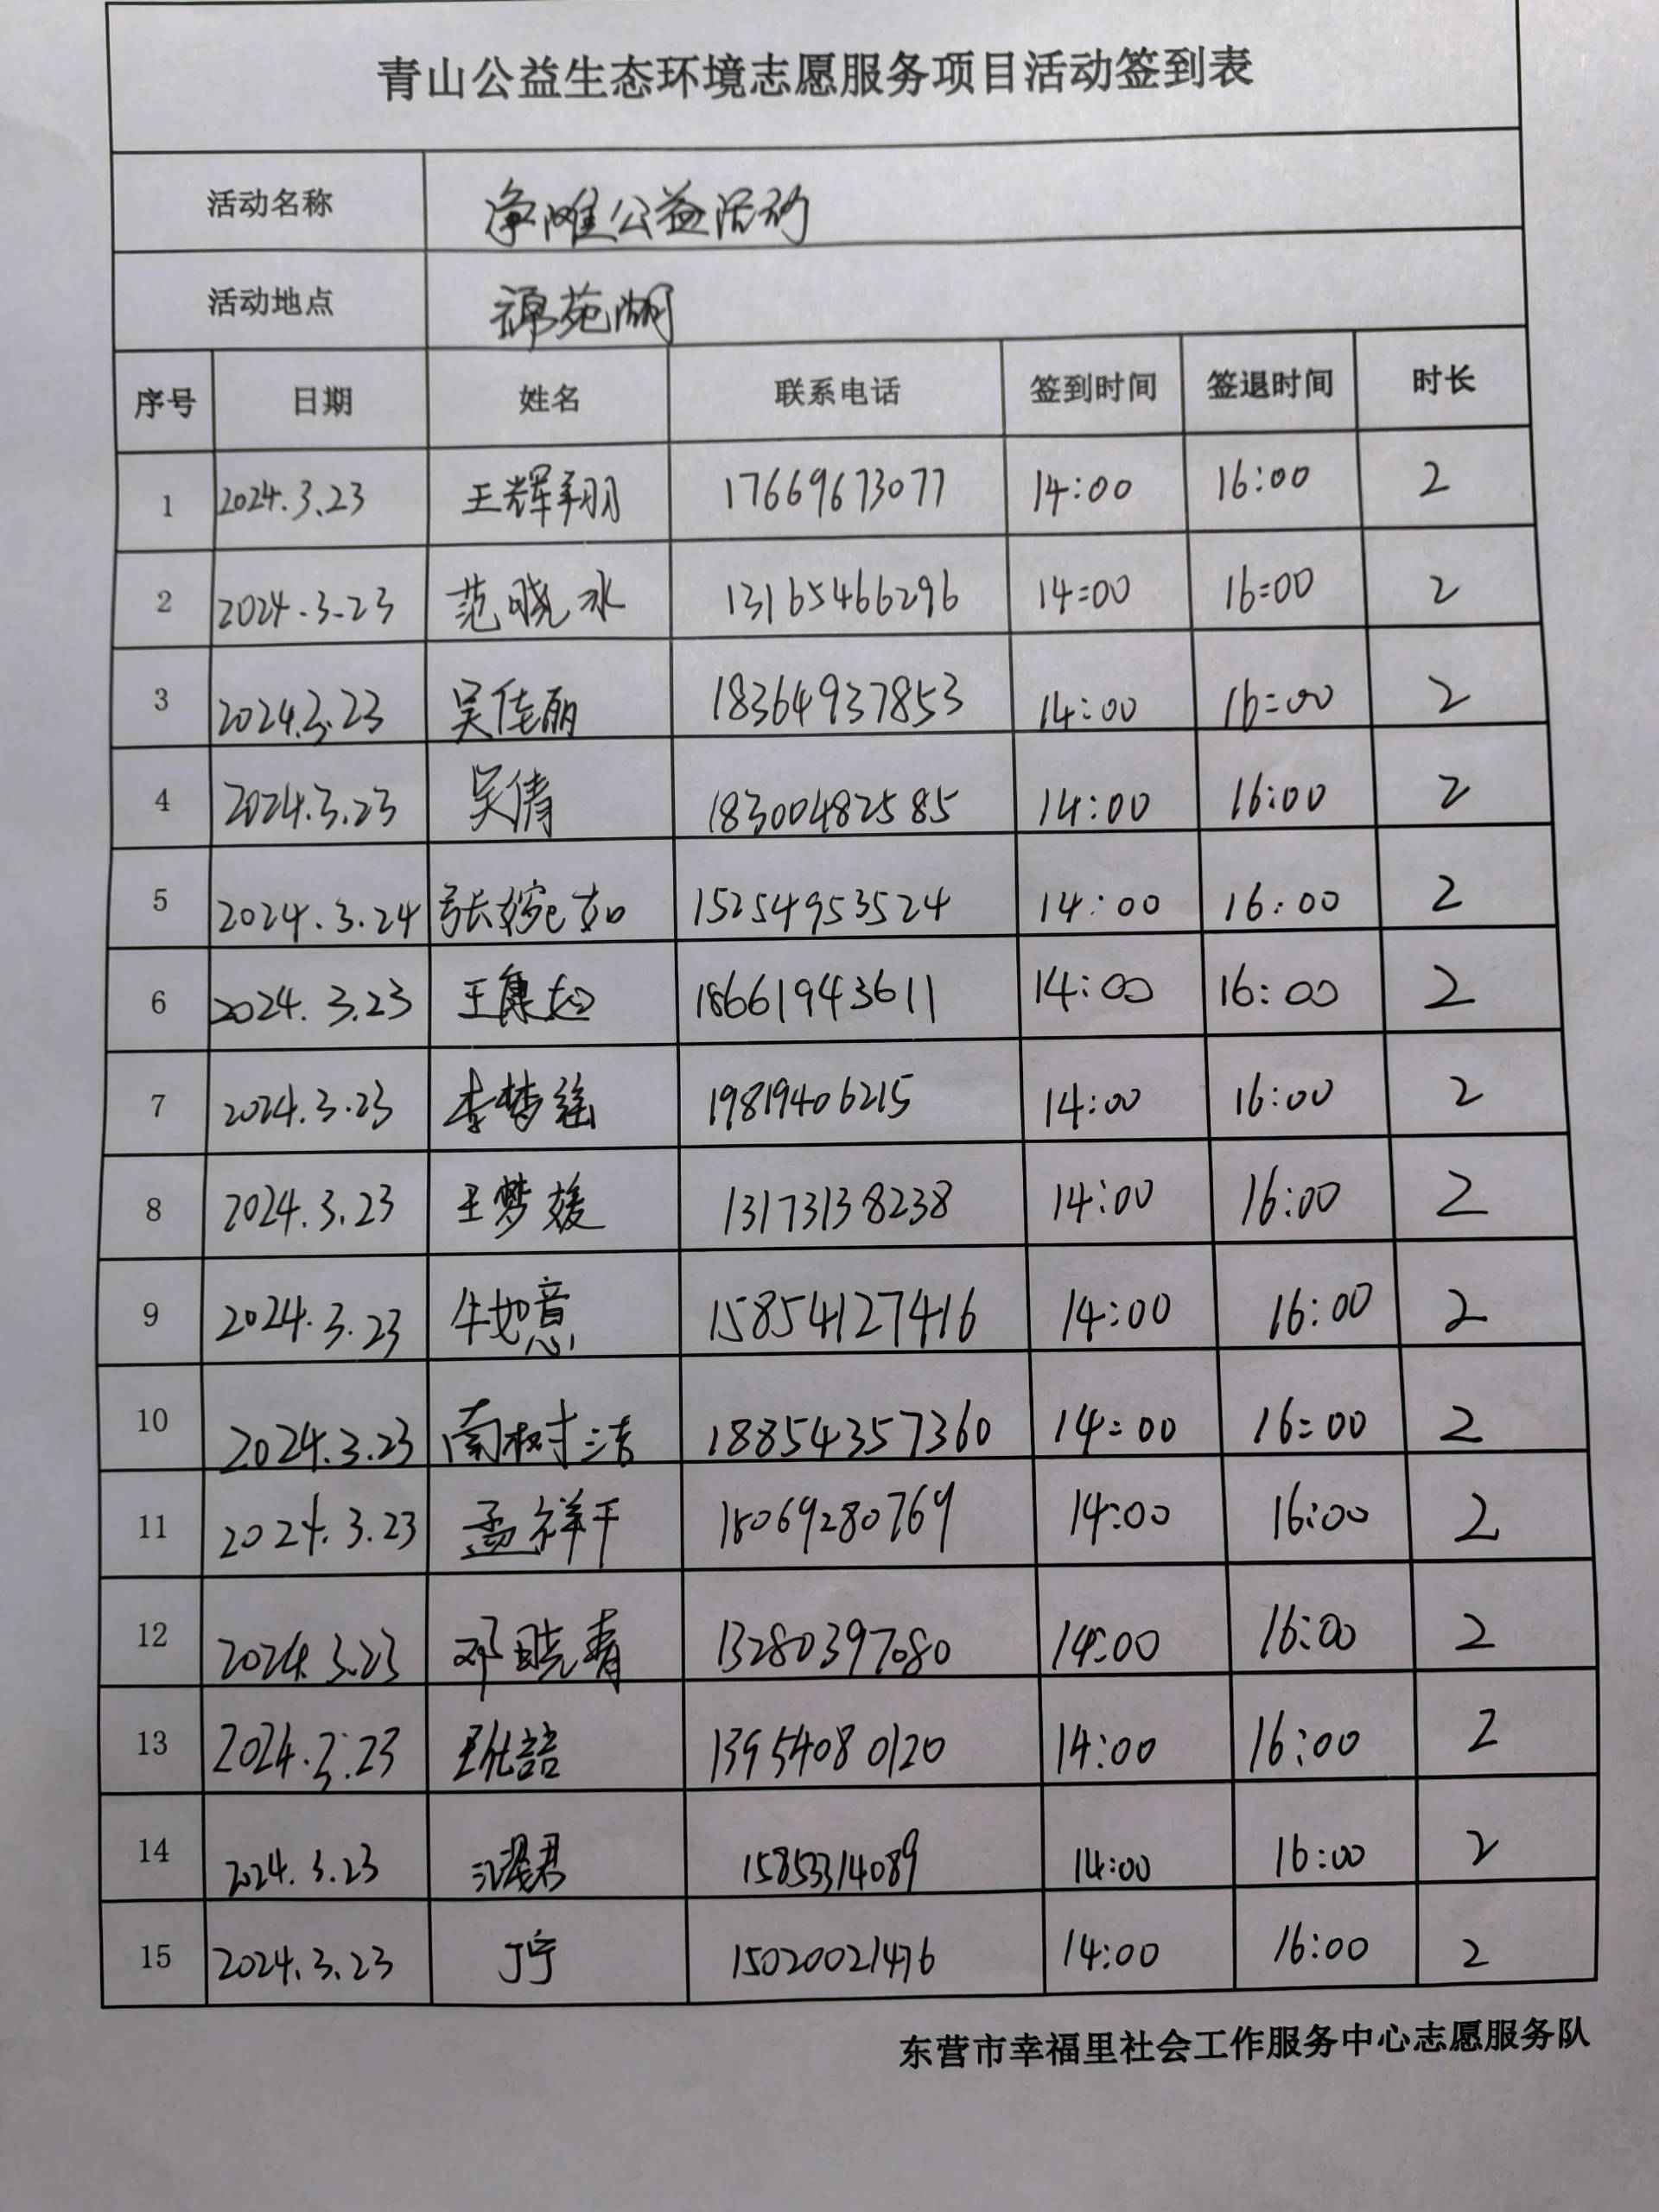 青山公益生态环境志愿服务项目活动签到表
活动名称 净滩公益活动
活动地点 锦苑湖
序号 日期 姓名 联系电话 签到时间 签退时间 时长
1 2024.3.23 王辉翔 17669673077 14:00 16:00 2
2 2024.3.23 范晓冰 13165466296 14:00 16:00 2
3 2024.3.23 吴佳丽 18364937853 14:00 16:00 2
4 2024.3.23 吴倩 18300482585 14:00 16:00 2
5 2024.3.24 张婉如 15254953524 14:00 16:00 2
6 2024.3.23 王康 18661943611 14:00 16:00 2
7 2024.3.23 李梦瑶 19819406215 14:00 16:00 2
8 2024.3.23 王梦媛 13173138238 14:00 16:00 2
9 2024.3.23 牛如意 15854127416 14:00 16:00 2
10 2024.3.23 南树洁 18854357360 14:00 16:00 2
11 2024.3.23 孟祥干 18069280769 14:00 16:00 2
12 2024.3.23 邓晓青 13280397080 14:00 16:00 2
13 2024.3.23 13954080120 14:00 16:00 2
14 2024.3.23 15853314089 14:00 16:00 2
15 2024.3.23 丁宁 15020021476 14:00 16:00 2
东营市幸福里社会工作服务中心志愿服务队